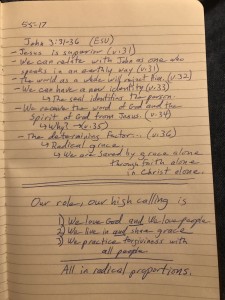 5-5-17
John 3:31-36 (ESV)
- Jesus is superior (v.31)
- We can relate with John as one who
speaks in an earthly way (v.31)
- the world as a whole will reject Him. (v.32)
- We can have a new identity (v.33)
↳ The seal identifies the person.
- We receive the word of God and the
Spirit of God from Jesus. (v.34)
↳ Why? → (v.35)
- The determining factor... (v.36)
↳ Radical grace
↳ We are saved by grace alone
through faith alone
in Christ alone.
Our role, our high calling is
1) We love God and We love people
2) We live in and share grace
3) We practice forgiveness with
all people
All in radical proportions.